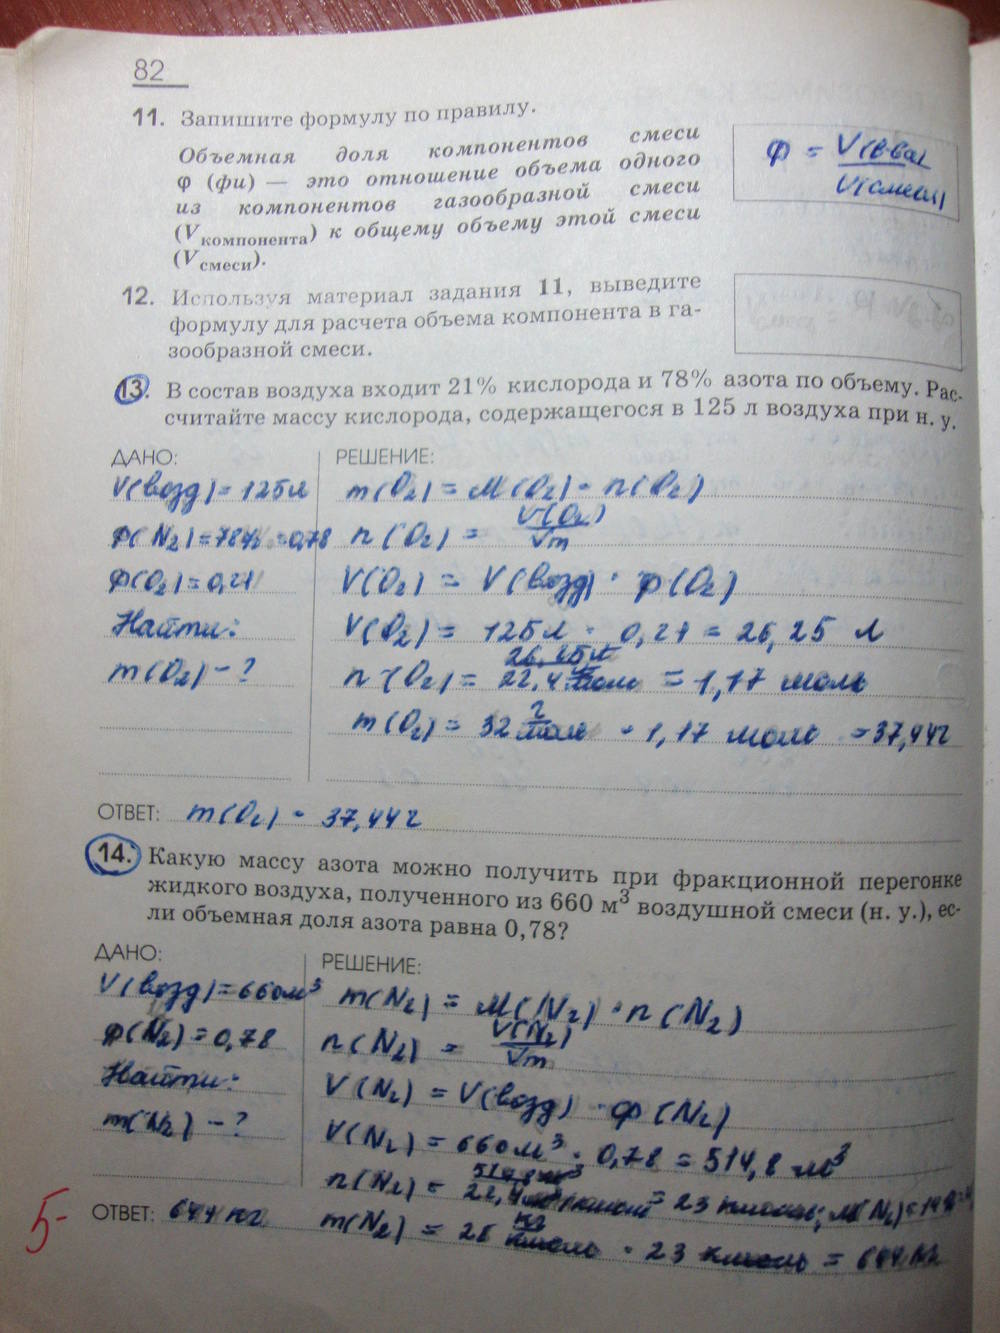 82
11. Запишите формулу по правилу.
Объемная доля компонентов смеси
φ (фи) — это отношение объема одного
из компонентов газообразной смеси
(Vкомпонента) к общему объему этой смеси
(Vсмеси).
φ = V(в-ва)
V(смеси)
12. Используя материал задания 11, выведите
формулу для расчета объема компонента в га-
зообразной смеси.
13. В состав воздуха входит 21% кислорода и 78% азота по объему. Рас-
считайте массу кислорода, содержащегося в 125 л воздуха при н. у.
ДАНО:
V(возд) = 125л
φ(N2) = 78% = 0,78
φ(O2) = 0,21
Найти:
m(O2) - ?
РЕШЕНИЕ:
m(O2) = M(O2) · n(O2)
n(O2) = V(O2)
Vm
V(O2) = V(возд) · φ(O2)
V(O2) = 125л · 0,21 = 26,25 л
n(O2) = 26,25л / 22,4 л/моль = 1,17 моль
m(O2) = 32 г/моль · 1,17 моль = 37,44г
ОТВЕТ: m(O2) = 37,44г
14. Какую массу азота можно получить при фракционной перегонке
жидкого воздуха, полученного из 660 м³ воздушной смеси (н. у.), ес-
ли объемная доля азота равна 0,78?
ДАНО:
V(возд) = 660м³
φ(N2) = 0,78
Найти:
m(N2) - ?
РЕШЕНИЕ:
m(N2) = M(N2) · n(N2)
n(N2) = V(N2)
Vm
V(N2) = V(возд) · φ(N2)
V(N2) = 660м³ · 0,78 = 514,8 м³
n(N2) = 514,8 м³ / 22,4 м³/кмоль = 23 кмоль; M(N2) = 14
m(N2) = 28 кг/кмоль · 23 кмоль = 644 кг
ОТВЕТ: 644 кг
5-